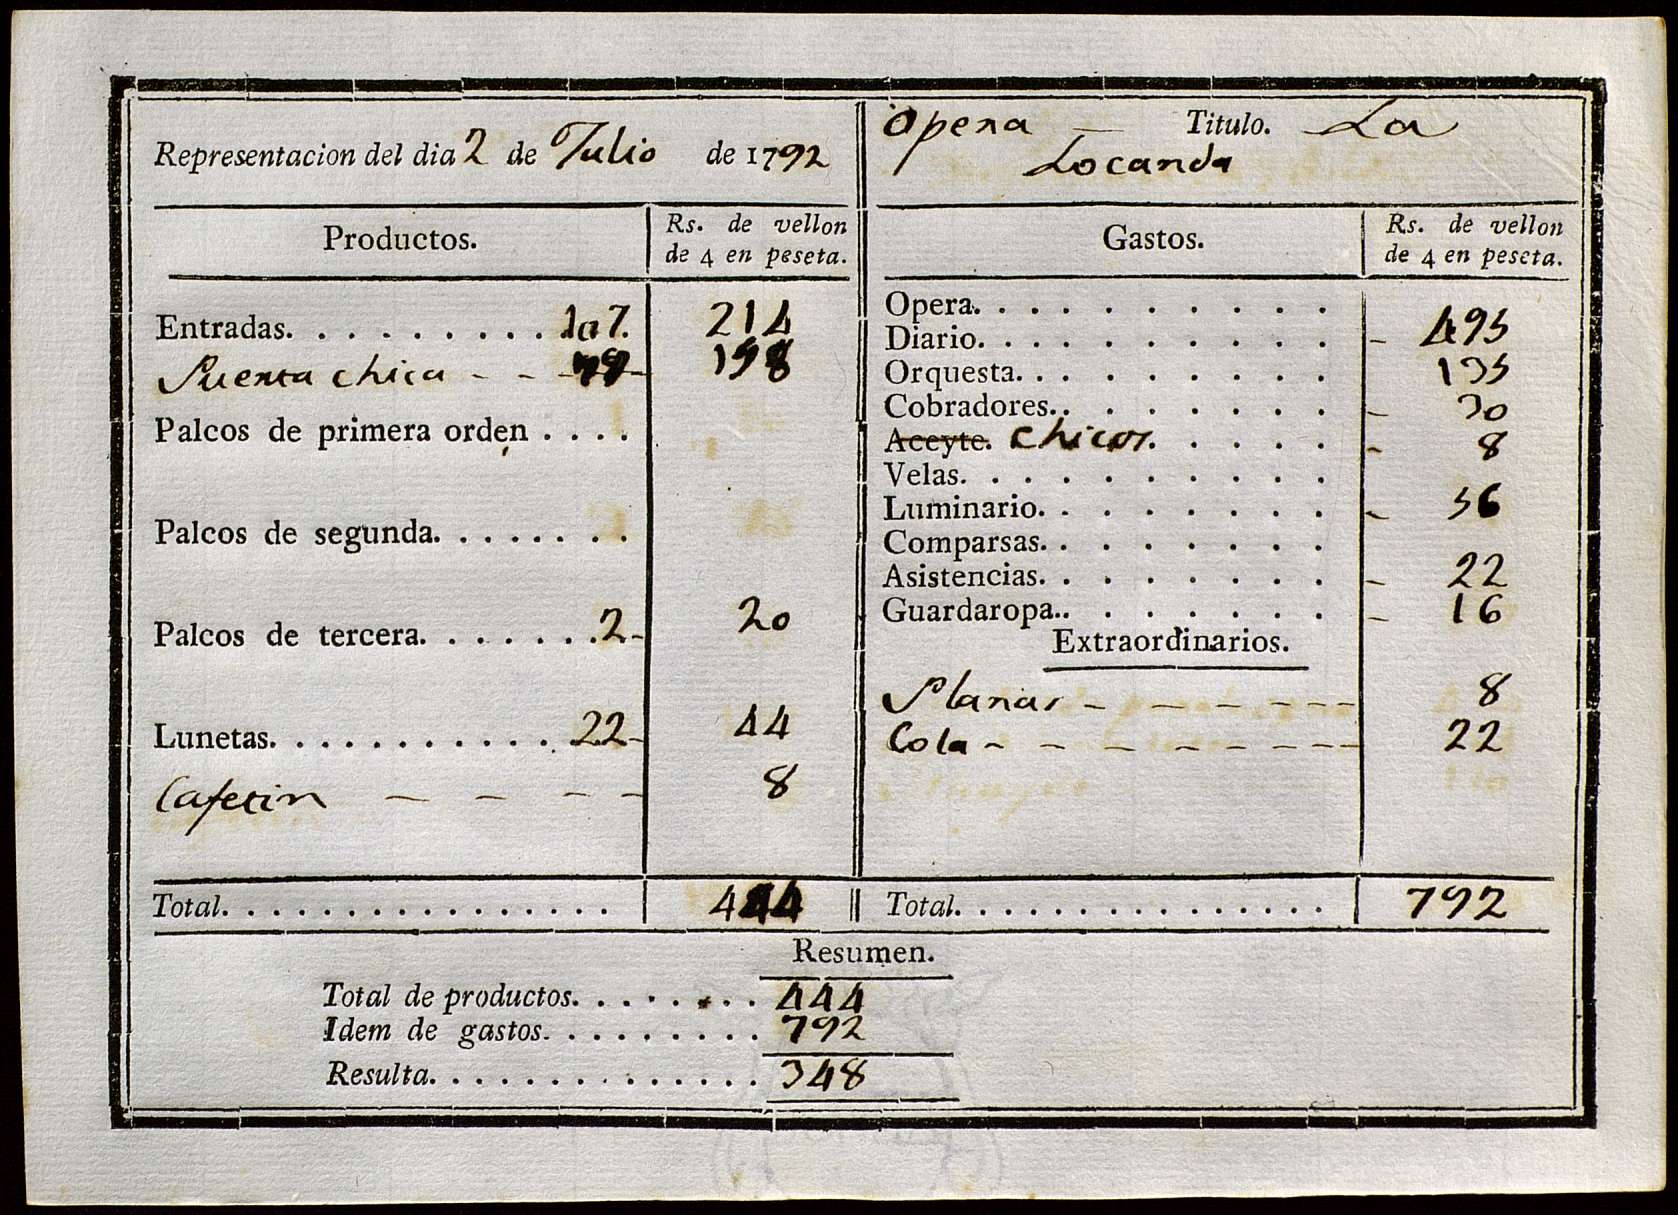 Representacion del dia 2 de Julio de 1792
Opera — Titulo. La
Locanda
Productos.
Rs. de vellon
de 4 en peseta.
Entradas. . . . . . . . . . 107. 214
Puerta chica - - - 79 158
Palcos de primera orden . . . .
Palcos de segunda. . . . . . . .
Palcos de tercera. . . . . . . 2- 20
Lunetas. . . . . . . . . . . 22- 44
Cafetin — — — — 8
Total. . . . . . . . . . . . . . . . 444
Gastos.
Rs. de vellon
de 4 en peseta.
Opera. . . . . . . . . .
Diario. . . . . . . . . . - 495
Orquesta. . . . . . . . . 135
Cobradores. . . . . . . . - 30
Aceyte. chicos. . . . . . - 8
Velas. . . . . . . . . .
Luminario. . . . . . . . - 56
Comparsas. . . . . . . .
Asistencias. . . . . . . . - 22
Guardaropa. . . . . . . . - 16
Extraordinarios.
Planas - - - - - - - 8
Cola - - - - - - - - 22
Total. . . . . . . . . . . . . . . 792
Resumen.
Total de productos. . . . . . . . 444
Idem de gastos. . . . . . . . . 792
Resulta. . . . . . . . . . . . . . 348